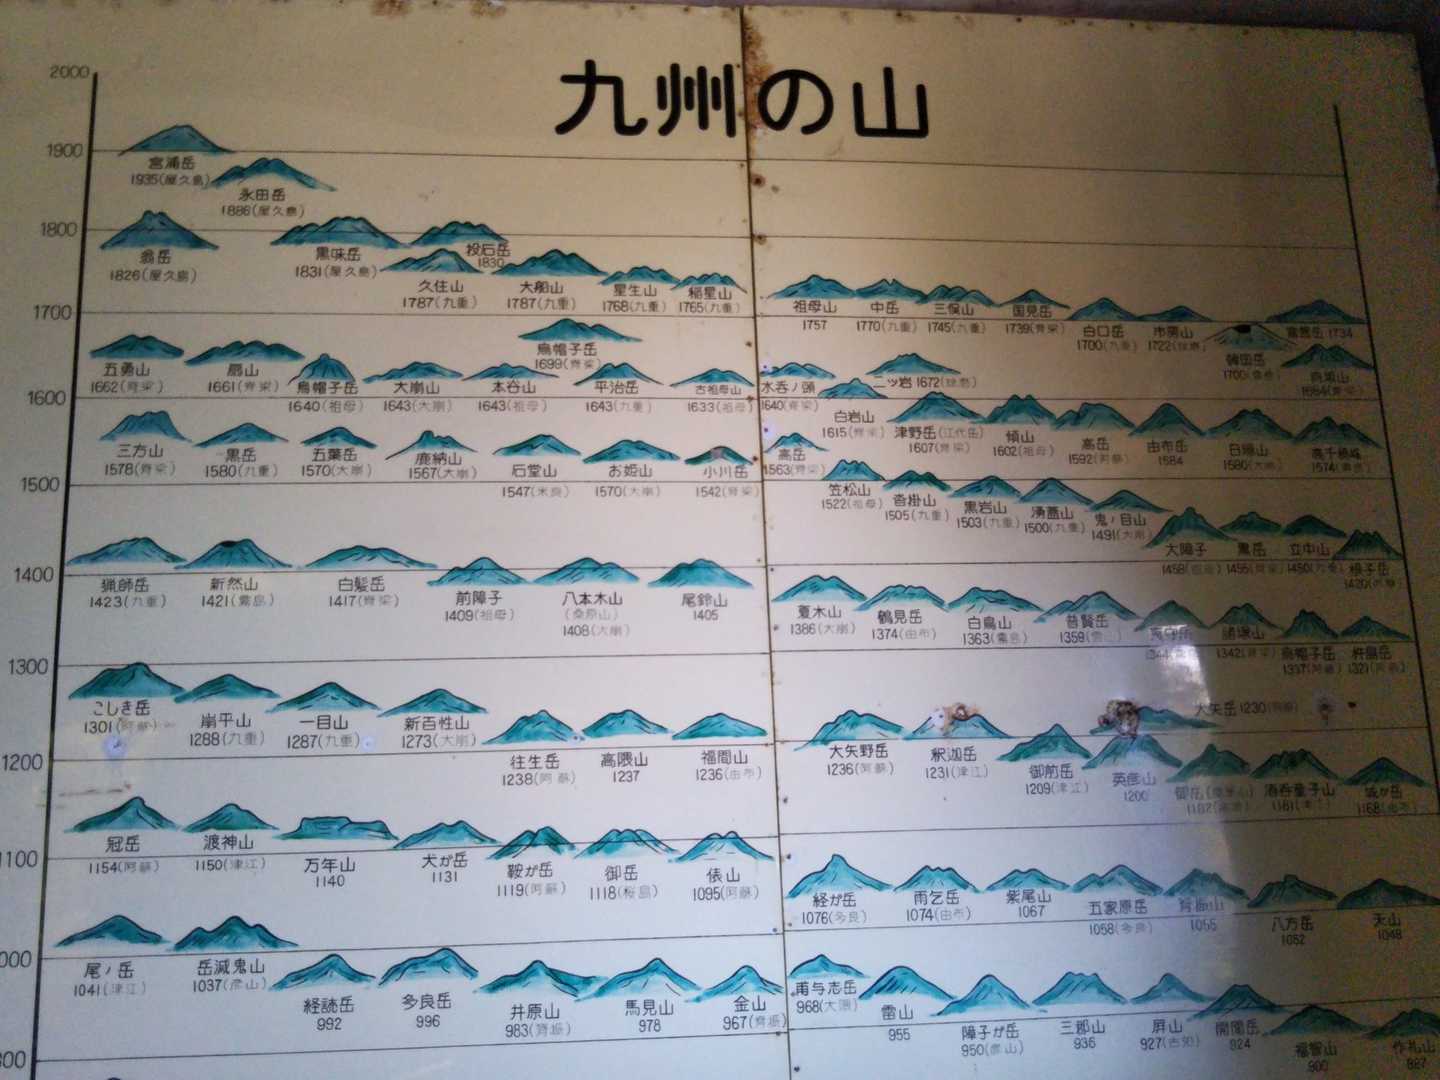 九州の山
2000
1900
宮浦岳
1935(屋久島)
永田岳
1886(屋久島)
1800
翁岳
1826(屋久島)
黒味岳
1831(屋久島)
投石岳
1830
久住山
1787(九重)
大船山
1787(九重)
星生山
1768(九重)
稲星山
1765(九重)
祖母山
1757
中岳
1770(九重)
三俣山
1745(九重)
国見岳
1739(脊梁)
白口岳
1700(九重)
市房山
1722(球磨)
1734
1700
烏帽子岳
1699(脊梁)
韓国岳
1700
五勇山
1662(脊梁)
扇山
1661(脊梁)
烏帽子岳
1640(祖母)
大崩山
1643(大崩)
本谷山
1643(祖母)
平治岳
1643(九重)
古祖母山
1633(祖母)
水呑ノ頭
1640(脊梁)
二ッ岩 1672(球磨)
向坂山
1684(脊梁)
1600
白岩山
1615(脊梁)
津野岳(江代岳)
1607(脊梁)
傾山
1602(祖母)
高岳
1592(阿蘇)
由布岳
1584
1580(大崩)
高千穂峰
1574(霧島)
三方山
1578(脊梁)
黒岳
1580(九重)
五葉岳
1570(大崩)
鹿納山
1567(大崩)
石堂山
1547(米良)
お姫山
1570(大崩)
小川岳
1542(脊梁)
高岳
1563(脊梁)
1500
笠松山
1522(祖母)
沓掛山
1505(九重)
黒岩山
1503(九重)
湧蓋山
1500(九重)
鬼ノ目山
1491(大崩)
大障子
1458(祖母)
黒岳
1455(脊梁)
立中山
1450(九重)
根子岳
1420(阿蘇)
1400
猟師岳
1423(九重)
新然山
1421(霧島)
白髪岳
1417(脊梁)
前障子
1409(祖母)
八本木山
(桑原山)
1408(大崩)
尾鈴山
1405
夏木山
1386(大崩)
鶴見岳
1374(由布)
白鳥山
1363(霧島)
普賢岳
1359(雲仙)
1344
1342(脊梁)
烏帽子岳
1337(阿蘇)
杵島岳
1321(阿蘇)
1300
こしき岳
1301(阿蘇)
崩平山
1288(九重)
一目山
1287(九重)
新百姓山
1273(大崩)
往生岳
1238(阿蘇)
高隈山
1237
福間山
1236(由布)
大矢野岳
1236(阿蘇)
釈迦岳
1231(津江)
大矢岳 1230(阿蘇)
1200
御前岳
1209(津江)
英彦山
1200
酒呑童子山
1181(津江)
城が岳
1168(由布)
冠岳
1154(阿蘇)
渡神山
1150(津江)
万年山
1140
犬が岳
1131
鞍が岳
1119(阿蘇)
御岳
1118(桜島)
俵山
1095(阿蘇)
1100
経が岳
1076(多良)
雨乞岳
1074(由布)
紫尾山
1067
五家原岳
1058(多良)
背振山
1055
八方岳
1052
天山
1048
尾ノ岳
1041(津江)
岳滅鬼山
1037(彦山)
経読岳
992
多良岳
996
井原山
983(背振)
馬見山
978
金山
967(背振)
甫与志岳
968(大隅)
雷山
955
障子が岳
950(彦山)
三郡山
936
屏山
927(古処)
開聞岳
924
福智山
900
作礼山
887